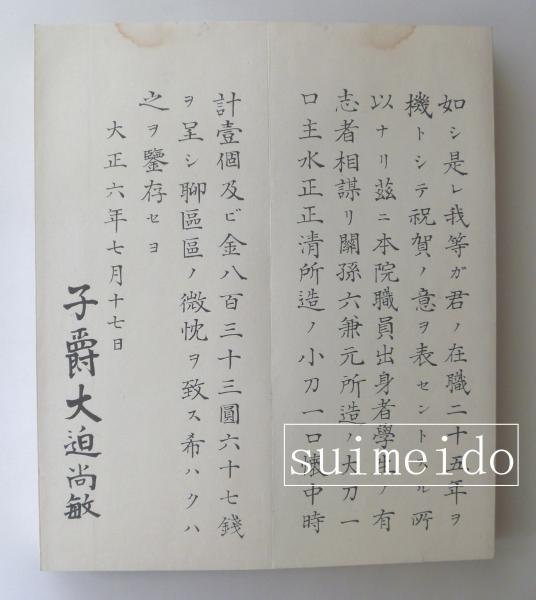 如シ是レ我等ガ君ノ在職二十五年ヲ
機トシテ祝賀ノ意ヲ表セントスル所
以ナリ玆ニ本院職員出身者學生ノ有
志者相謀リ關孫六兼元所造ノ大刀一
口主水正正淸所造ノ小刀一口懷中時
計壹個及ビ金八百三十三圓六十七錢
ヲ呈シ聊區區ノ微忱ヲ致ス希ハクハ
之ヲ鑒存セヨ
大正六年七月十七日
子爵大迫尚敏
suimeido